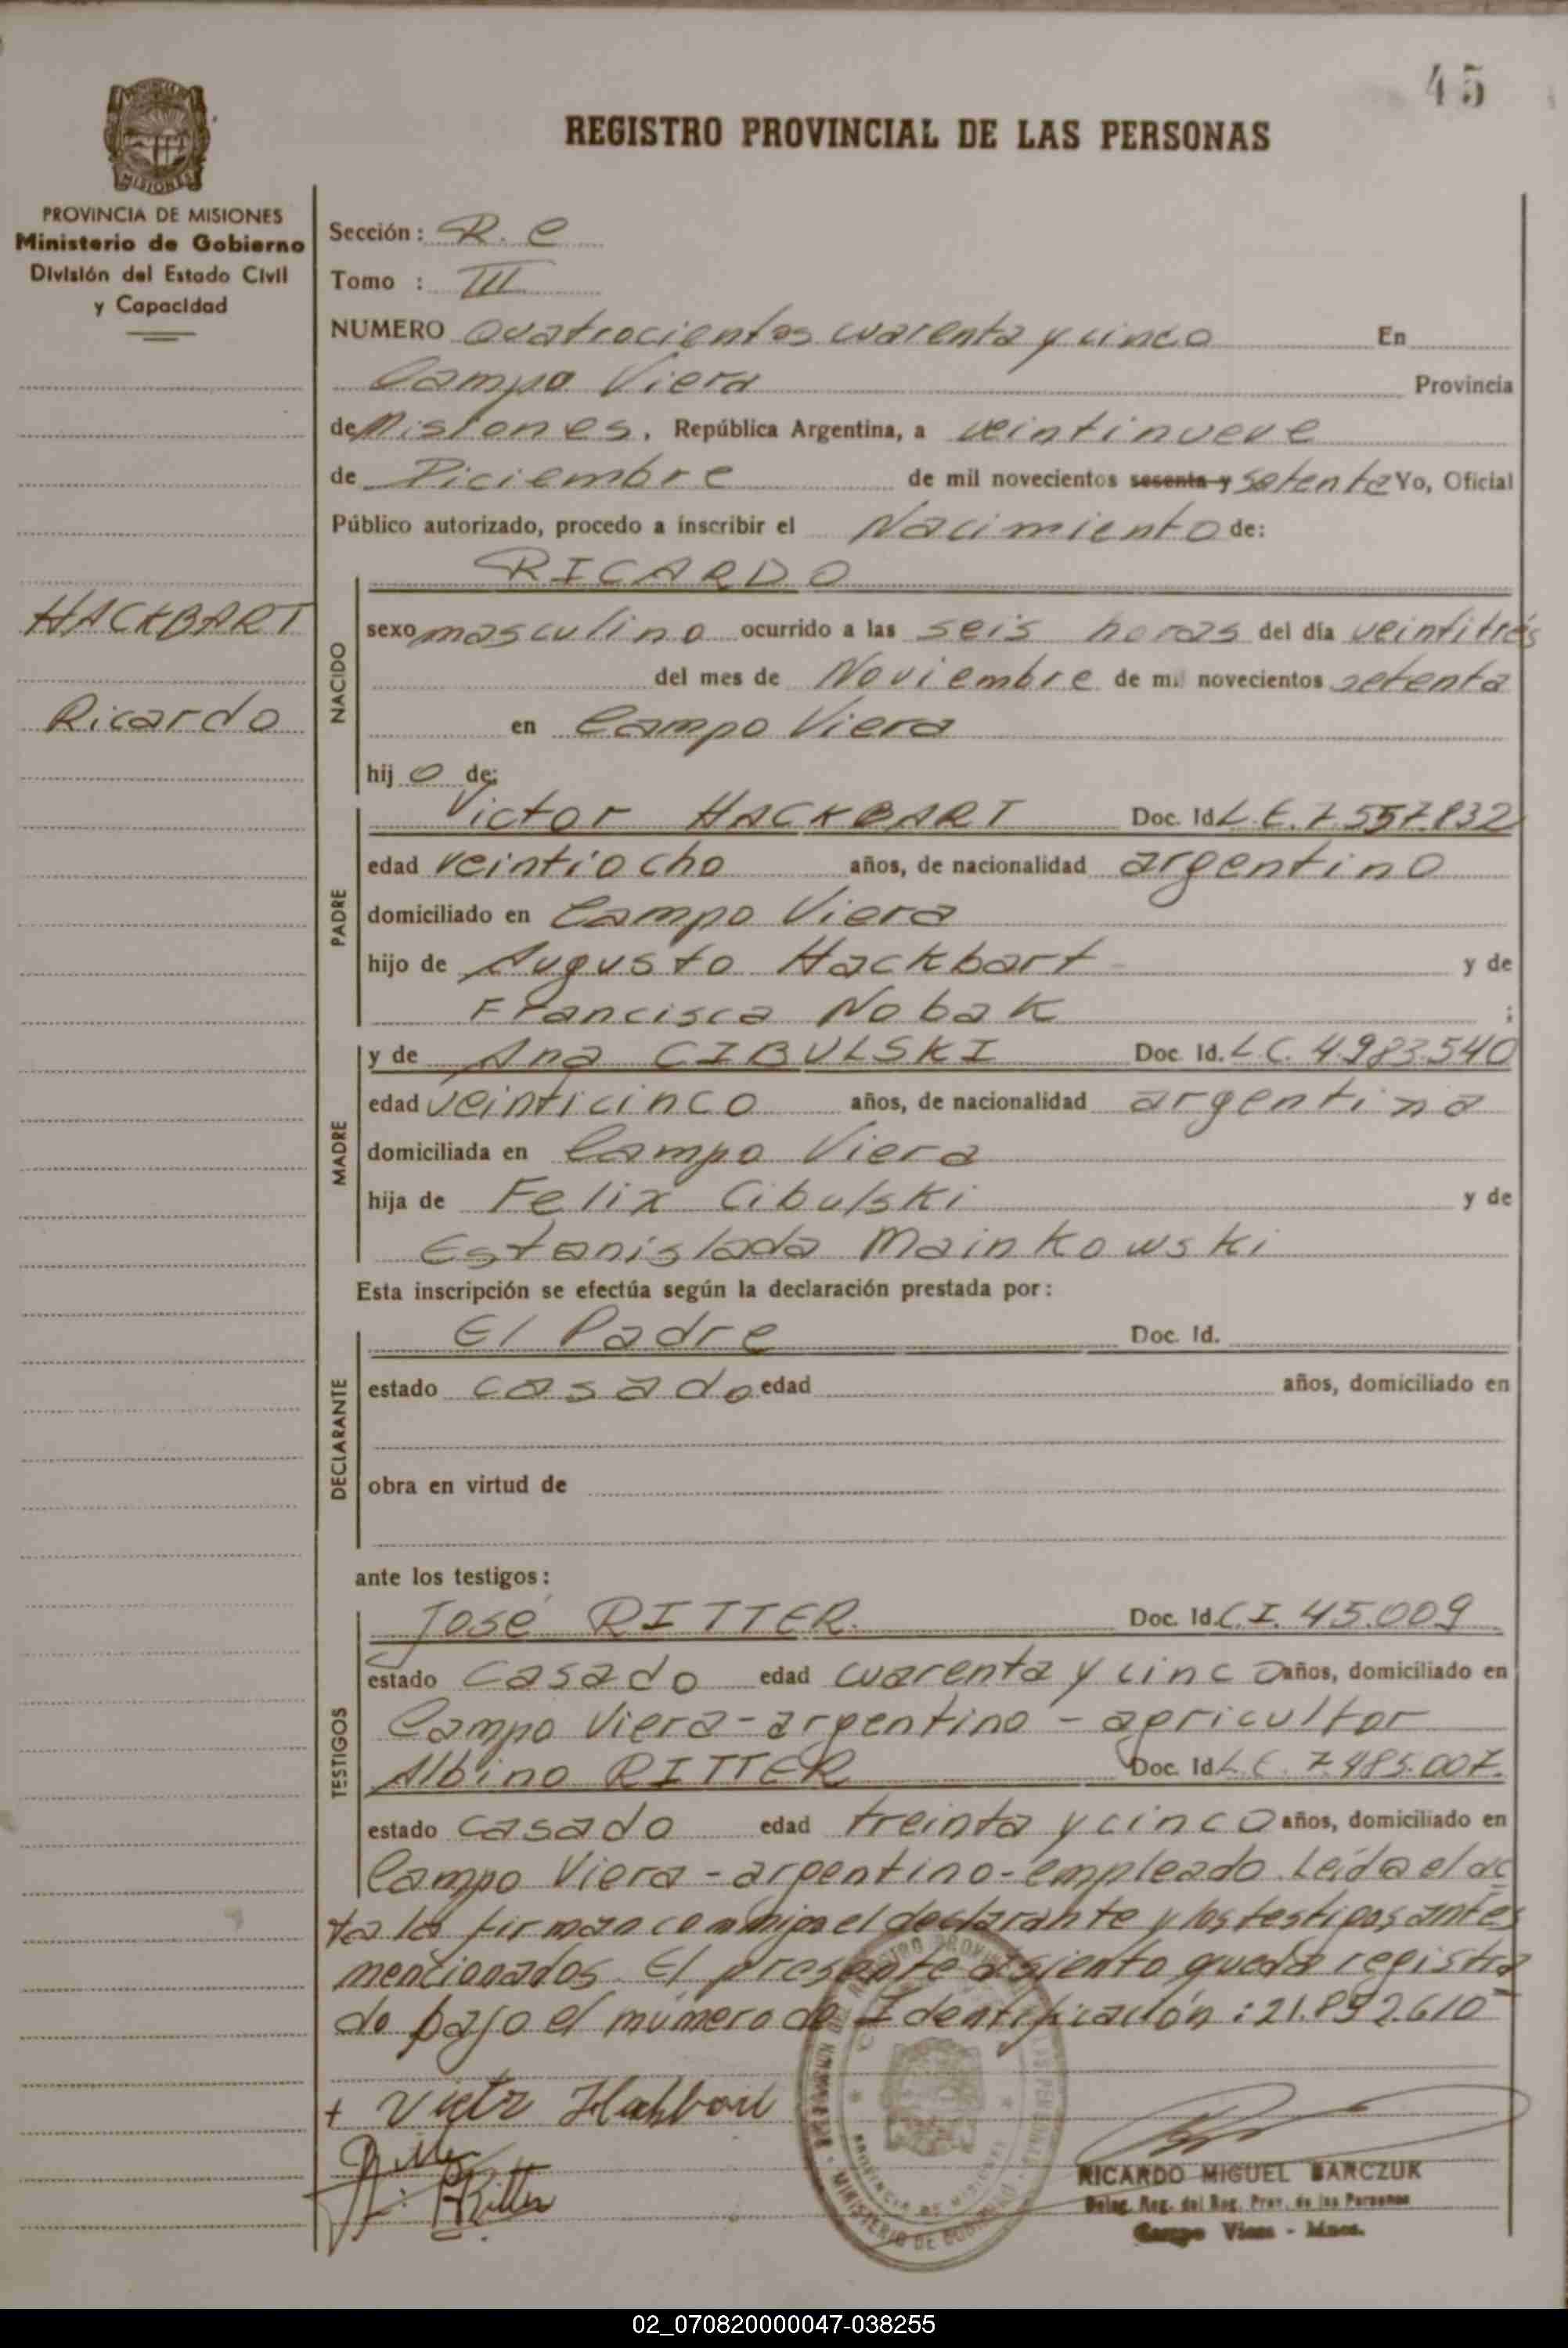 45
REGISTRO PROVINCIAL DE LAS PERSONAS
MISIONES
PROVINCIA DE MISIONES
Ministerio de Gobierno
División del Estado Civil
y Capacidad
HACKBART
Ricardo
Sección: R. C
Tomo : III
NUMERO Quatrocientos cuarenta y cinco En
Campo Viera Provincia
de Misiones, República Argentina, a veintinueve
de Diciembre de mil novecientos sesenta y setenta Yo, Oficial
Público autorizado, procedo a inscribir el Nacimiento de:
RICARDO
NACIDO
sexo masculino ocurrido a las seis horas del día veintitrés
del mes de Noviembre de mil novecientos setenta
en Campo Viera
hij o de:
PADRE
Victor HACKBART Doc. Id. L.E. 7.557.832
edad veintiocho años, de nacionalidad argentino
domiciliado en Campo Viera
hijo de Augusto Hackbart y de
Francisca Nobak ;
MADRE
y de Ana CIBULSKI Doc. Id. L.C. 4.983.540
edad veinticinco años, de nacionalidad argentina
domiciliada en Campo Viera
hija de Felix Cibulski y de
Estanislada Mainkowski
Esta inscripción se efectúa según la declaración prestada por:
DECLARANTE
El Padre Doc. Id.
estado casado edad años, domiciliado en
obra en virtud de
ante los testigos:
TESTIGOS
José RITTER. Doc. Id. C.I. 45.009
estado casado edad cuarenta y cinco años, domiciliado en
Campo Viera - argentino - agricultor
Albino RITTER Doc. Id. L.E. 7.485.007.
estado casado edad treinta y cinco años, domiciliado en
Campo Viera - argentino - empleado. Leída el ac
ta la firman conmigo el declarante y los testigos antes
mencionados. El presente asiento queda registra
do bajo el número de Identificación: 21.852.610
+ Victor Hackbart
Ritter
A. Ritter
MINISTERIO DE GOBIERNO
PROVINCIA DE MISIONES
RICARDO MIGUEL BARCZUK
Deleg. Reg. del Reg. Prov. de las Personas
Campo Viera - Mnes.
02_070820000047-038255